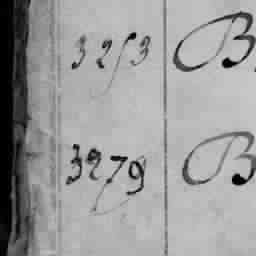 3253 B
3279 B